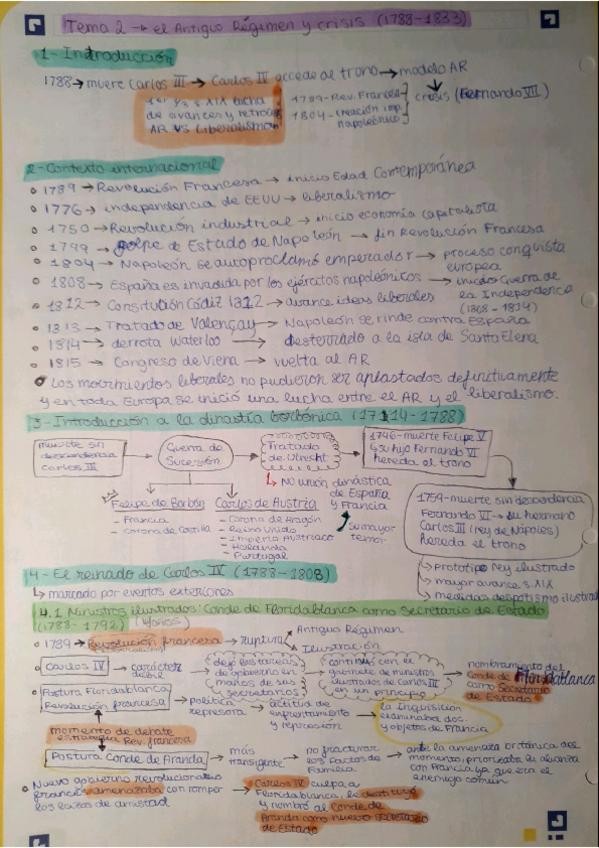 Tema 2 → el Antiguo Régimen y crisis (1788-1833)
1- Introducción
1788 → muere Carlos III → Carlos IV accede al trono → modelo AR
1er 1/3 s XIX lucha
de avances y retroc
AR VS Liberalismo
1789-Rev. Francesa
1804-Creación imp.
napoleónico
crisis (Fernando VII)
2-Contexto internacional
1789 → Revolución Francesa → inicio Edad Contemporánea
1776 → independencia de EEUU → liberalismo
1750 → Revolución industrial → inicio economía capitalista
1799 → golpe de Estado de Napoleón → fin Revolución Francesa
1804 → Napoleón se autoproclamó emperador → proceso conquista
europea
1808 → España es invadida por los ejércitos napoleónicos → inicio Guerra de
la Independencia
(1808-1814)
1812 → Constitución Cádiz 1812 → avance ideas liberales
1813 → Tratado de Valençay → Napoleón se rinde contra España
1814 → derrota Waterloo → desterrado a la isla de Santa Elena
1815 → Congreso de Viena → vuelta al AR
Los movimientos liberales no pudieron ser aplastados definitivamente
y en toda Europa se inició una lucha entre el AR y el liberalismo.
3- Introducción a la dinastía borbónica (1714-1788)
muerte sin
descendencia
Carlos II
Guerra de
Sucesión
Tratado
de Utrecht
1746-muerte Felipe V
su hijo Fernando VI
hereda el trono
No unión dinástica
de España
y Francia
su mayor
temor
Felipe de Borbón
- Francia
- Corona de Castilla
Carlos de Austria
- Corona de Aragón
- Reino Unido
- Imperio Austriaco
- Holanda
- Portugal
1759-muerte sin descendencia
Fernando VI → su hermano
Carlos III (rey de Nápoles)
hereda el trono
prototipo rey ilustrado
mayor avance s. XIX
medidas despotismo ilustrad
4- El reinado de Carlos IV (1788-1808)
marcado por eventos exteriores
4.1 Ministros ilustrados: Conde de Floridablanca como Secretario de Estado
(1788-1792)
1789 → Revolución francesa → ruptura
Antiguo Régimen
Ilustración
Carlos IV → carácter
débil
dejó las tareas
de gobierno en
manos de sus
secretarios
continuó con el
gabinete de ministros
ilustrados de Carlos III
en un principio
nombramiento del
Conde de Floridablanca
como Secretario
de Estado
Postura Floridablanca
Revolución francesa
Política
represora
actitud de
enfrentamiento
y represión
la Inquisición
examinaba doc.
y objetos de Francia
momento de debate
estrategia Rev. francesa
Postura Conde de Aranda
más
transigente
no fracturar
los Pactos de
Familia
ante la amenaza británica del
momento, priorizaba la alianza
con Francia ya que era el
enemigo común
Nuevo gobierno revolucionario
francés amenazaba con romper
los lazos de amistad
Carlos IV culpa a
Floridablanca, lo destituyó
y nombró al Conde de
Aranda como nuevo secretario
de Estado